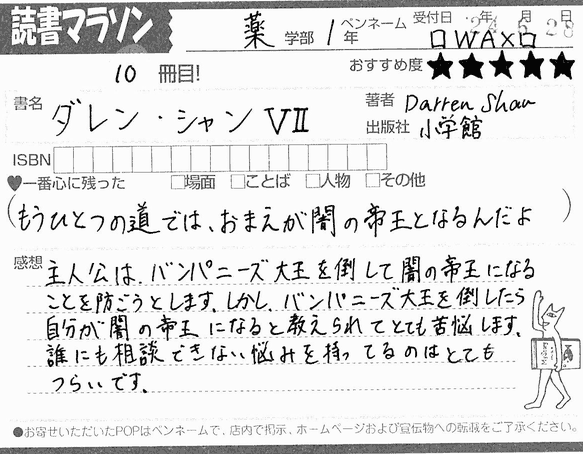 読書マラソン
薬 学部 1 年 ペンネーム 受付日 年 月 日
24 5 28
口WAX口
10 冊目! おすすめ度 ★★★★★
書名 ダレン・シャン Ⅶ 著者 Darren Shan
出版社 小学館
ISBN
♥一番心に残った □場面 □ことば □人物 □その他
(もうひとつの道では、おまえが闇の帝王となるんだよ)
感想 主人公は、バンパニーズ大王を倒して闇の帝王になる
ことを防ごうとします。しかし、バンパニーズ大王を倒したら
自分が闇の帝王になると教えられてとても苦悩します。
誰にも相談できない悩みを持ってるのはとても
つらいです。
●お寄せいただいたPOPはペンネームで、店内で掲示、ホームページおよび宣伝物への転載をご了承ください。